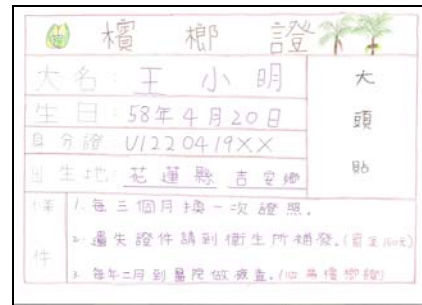 檳榔證
大名：王小明
大頭貼
生日：58年4月20日
身分證：U1220419XX
出生地：花蓮縣吉安鄉
條件
1. 每三個月換一次證照。
2. 遺失證件請到衛生所補發。
3. 每年二月到醫院做檢查。